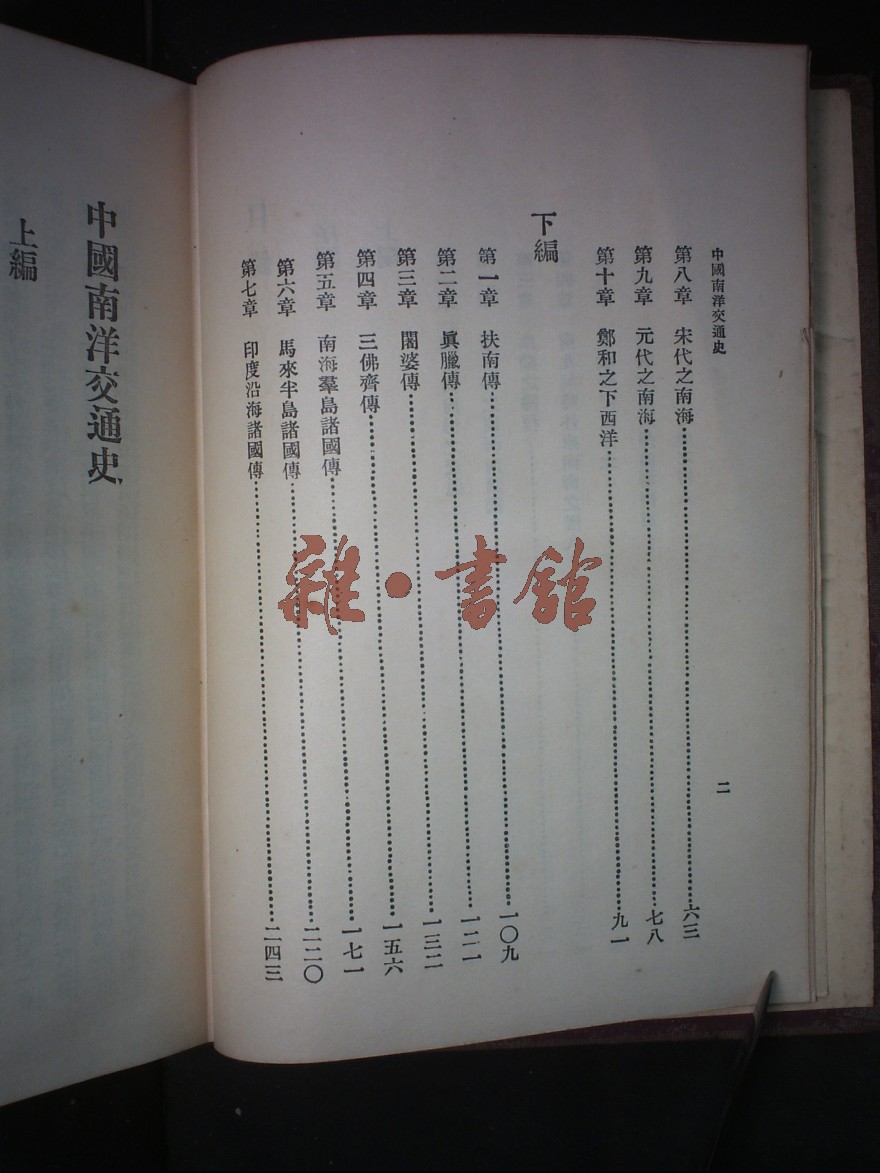 中國南洋交通史
二
第八章　宋代之南海……六三
第九章　元代之南海……七八
第十章　鄭和之下西洋……九一
下編
第一章　扶南傳……一〇九
第二章　眞臘傳……一二一
第三章　闍婆傳……一三二
第四章　三佛齊傳……一五六
第五章　南海羣島諸國傳……一七一
第六章　馬來半島諸國傳……二二〇
第七章　印度沿海諸國傳……二四三
中國南洋交通史
上編
雜·書館